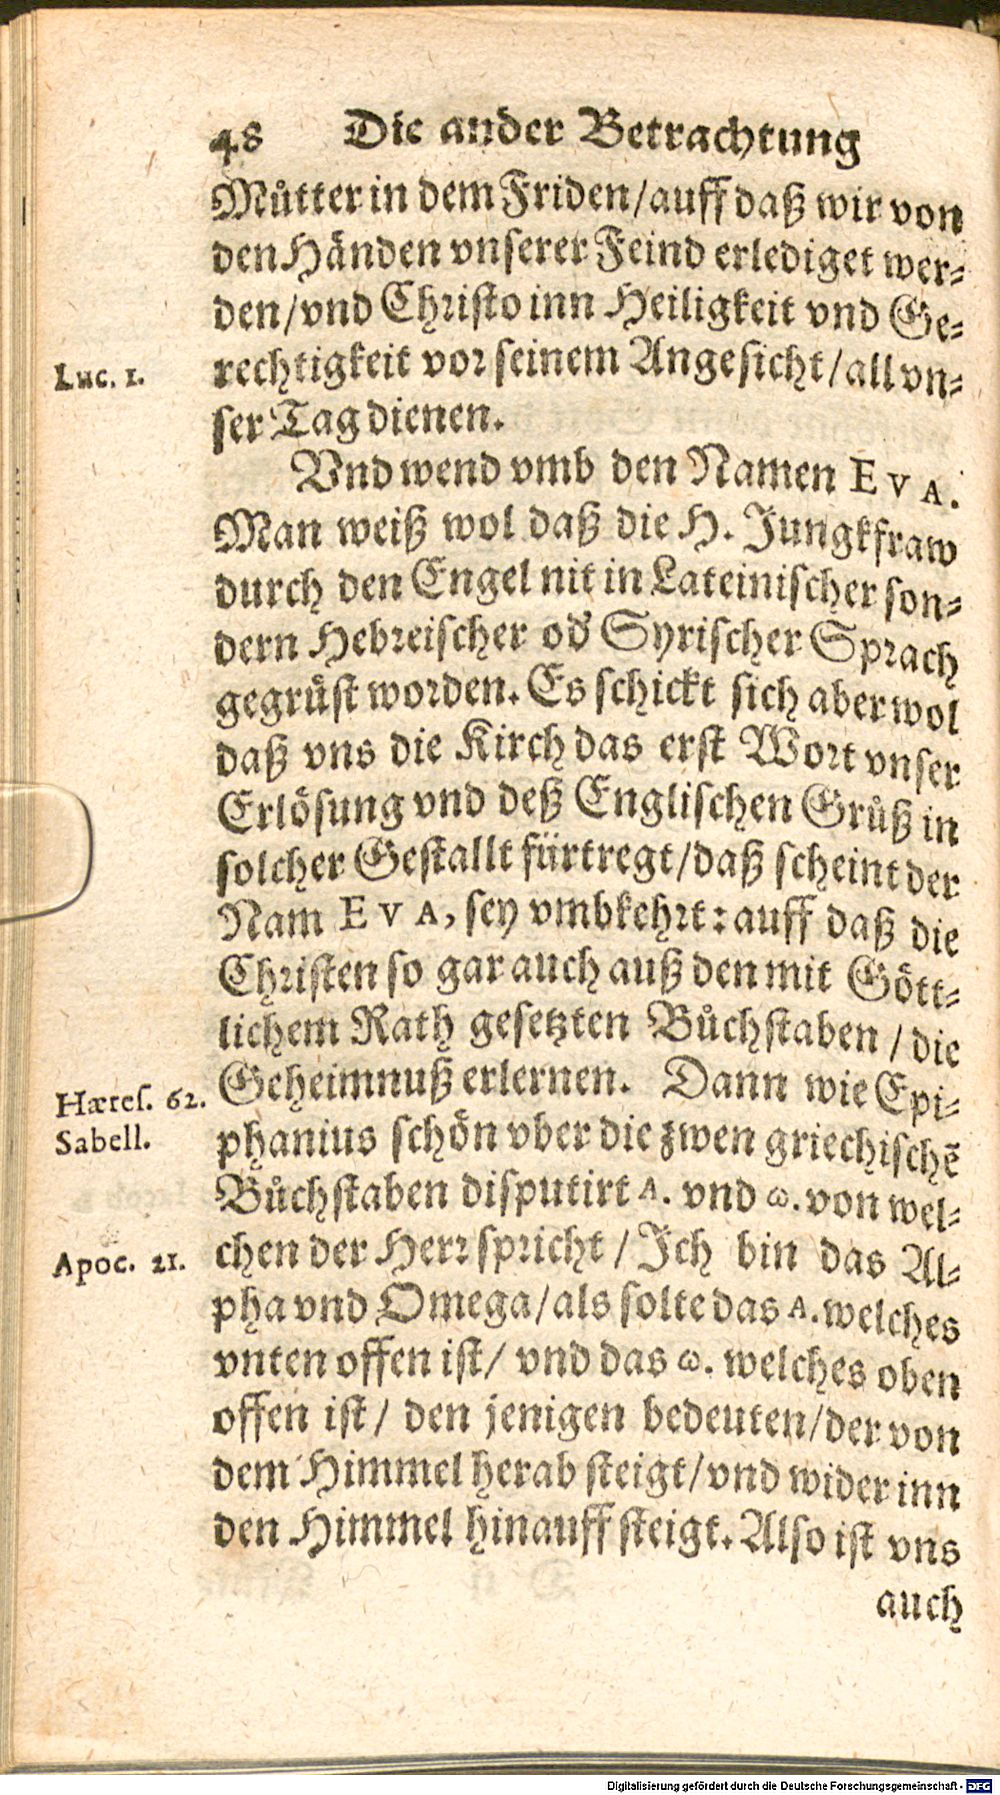 48 Die ander Betrachtung
Můtter in dem Friden/auff daß wir von
den Händen vnserer Feind erlediget wer-
den/vnd Christo inn Heiligkeit vnd Ge-
Luc. 1. rechtigkeit vor seinem Angesicht/all vn-
ser Tag dienen.
Vnd wend vmb den Namen EVA.
Man weiß wol daß die H. Jungkfraw
durch den Engel nit in Lateinischer son-
dern Hebreischer od' Syrischer Sprach
gegrůst worden. Es schickt sich aber wol
daß vns die Kirch das erst Wort vnser
Erlösung vnd deß Englischen Grůß in
solcher Gestallt fürtregt/daß scheint der
Nam EVA, sey vmbkehrt: auff daß die
Christen so gar auch auß den mit Gött-
lichem Rath gesetzten Bůchstaben / die
Hæres. 62. Geheimnuß erlernen. Dann wie Epi-
Sabell. phanius schön vber die zwen griechischẽ
Bůchstaben disputirt A. vnd ω. von wel-
Apoc. 21. chen der Herr spricht / Ich bin das Al-
pha vnd Omega/als solte das A. welches
vnten offen ist/ vnd das ω. welches oben
offen ist/ den jenigen bedeuten/der von
dem Himmel herab steigt/vnd wider inn
den Himmel hinauff steigt. Also ist vns
auch
Digitalisierung gefördert durch die Deutsche Forschungsgemeinschaft - DFG